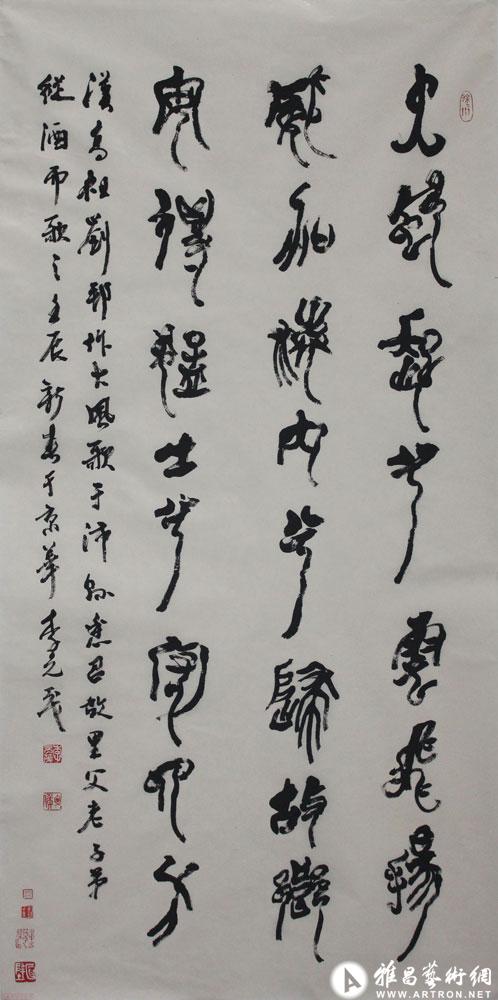 大風起兮雲飛揚
威加海內兮歸故鄉
安得猛士兮守四方
漢高祖劉邦作大風歌于沛縣悉召故里父老子弟
縱酒而歌之壬辰新春于京華李
雅昌藝術網
WWW.ARTRON.NET